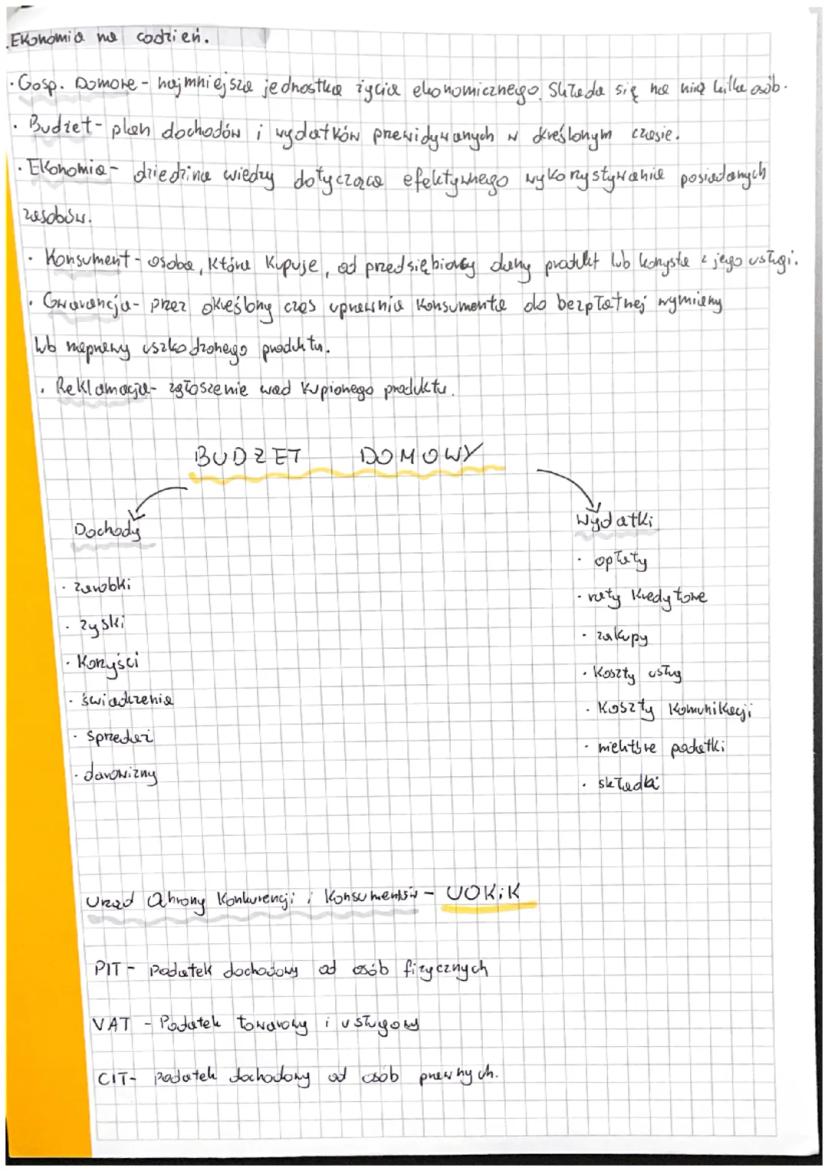 Ekonomia na codzień.
· Gosp. Domowe - najmniejsza jednostka życia ekonomicznego. Składa się na nią kilka osób.
· Budżet - plan dochodów i wydatków przewidywanych w określonym czasie.
· Ekonomia - dziedzina wiedzy dotycząca efektywnego wykorzystywania posiadanych
zasobów.
· Konsument - osoba, która kupuje, od przedsiębiorcy dany produkt lub korzysta z jego usługi.
· Gwarancja - przez określony czas uprawnia konsumenta do bezpłatnej wymiany
lub naprawy uszkodzonego produktu.
· Reklamacja - zgłoszenie wad kupionego produktu.
BUDŻET DOMOWY
Dochody
· zarobki
· zyski
· korzyści
· świadczenia
· sprzedaż
· darowizny
Wydatki
· opłaty
· raty kredytowe
· zakupy
· koszty usług
· koszty komunikacji
· niektóre podatki
· składki
Urząd Ochrony Konkurencji i Konsumentów - UOKiK
PIT - Podatek dochodowy od osób fizycznych
VAT - Podatek towarowy i usługowy
CIT - Podatek dochodowy od osób prawnych.